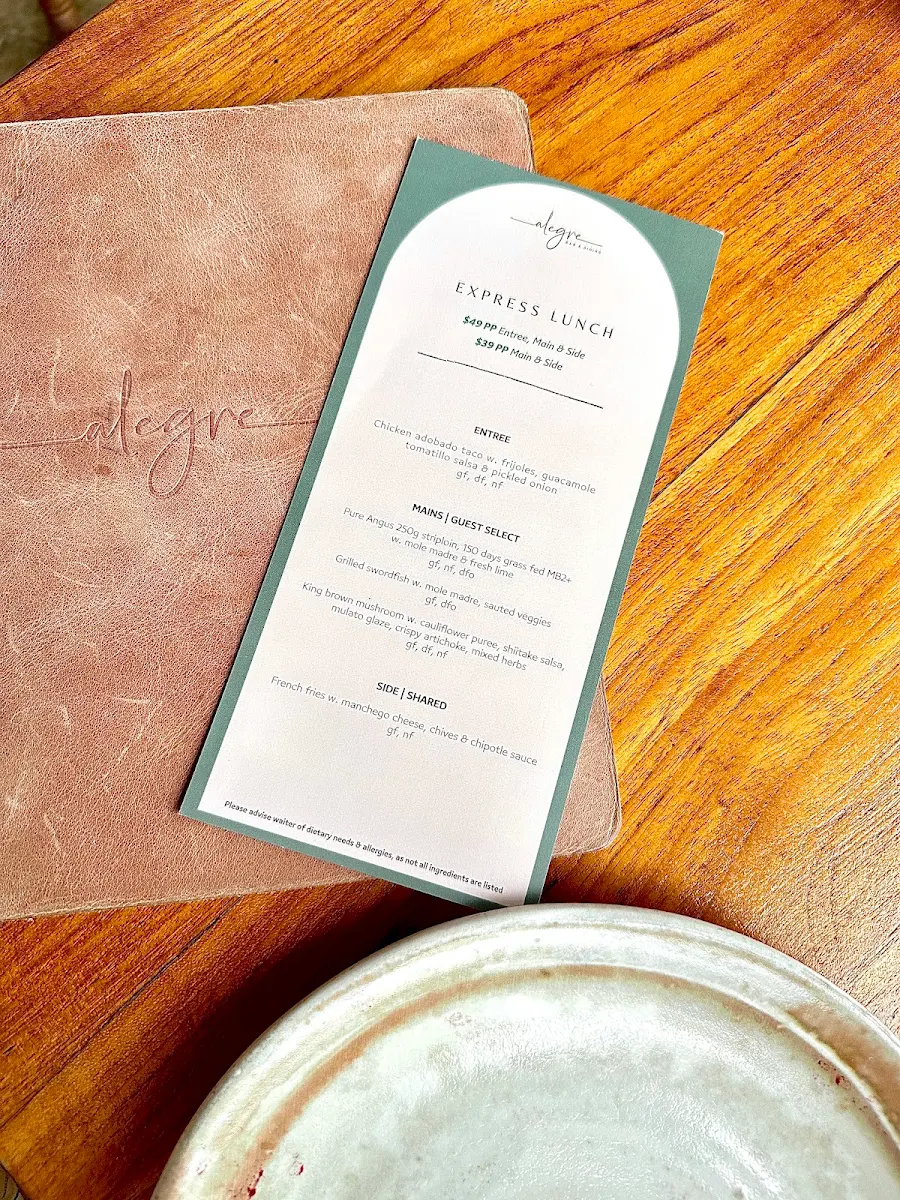 alegre
alegre
BAR & DINING
EXPRESS LUNCH
$49 PP Entree, Main & Side
$39 PP Main & Side
ENTREE
Chicken adobado taco w. frijoles, guacamole
tomatillo salsa & pickled onion
gf, df, nf
MAINS | GUEST SELECT
Pure Angus 250g striploin, 150 days grass fed MB2+
w. mole madre & fresh lime
gf, nf, dfo
Grilled swordfish w. mole madre, sauted veggies
gf, dfo
King brown mushroom w. cauliflower puree, shiitake salsa,
mulato glaze, crispy artichoke, mixed herbs
gf, df, nf
SIDE | SHARED
French fries w. manchego cheese, chives & chipotle sauce
gf, nf
Please advise waiter of dietary needs & allergies, as not all ingredients are listed